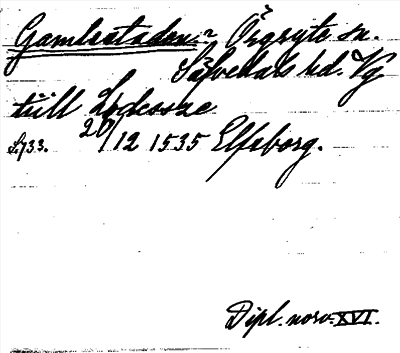 Gamlestaden? Örgryte sn.
Sävedals hd. Vg
till Lodessae
S. 733. 20/12 1535 Elfsborg.
Dipl. norv. XVI.